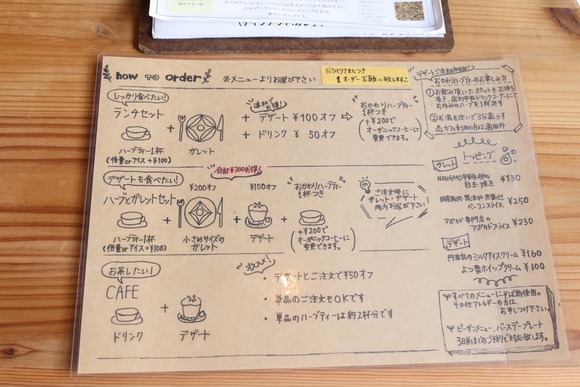 how to order
※メニューよりお選び下さい
おひとりさまにつき
1オーダーお願い致します
しっかり食べたい!
ランチセット
ハーブティー1杯
(倍量orアイス+¥100)
+
ガレット
追加でお得!
+ デザート ¥100オフ
+ ドリンク ¥50オフ
おかわりハーブティー
1杯つき
+¥200で
オーガニックコーヒーに
変更できます。
デザートも食べたい!
合計¥300お得!
ハーブとガレットセット
¥200オフ
¥100オフ
ハーブティー1杯
(倍量orアイス+¥100)
+
小さめサイズの
ガレット
+
デザート
+
おかわりハーブティー
1杯つき
+¥200で
オーガニックコーヒーに
変更できます。
ご注文時に
ガレット・デザート
両方お選び下さい
お茶したい!
CAFE
ドリンク
+
デザート
オススメ!
・デザートとご注文で¥50オフ
・単品のご注文もOKです
・単品のハーブティーは約2杯分です
おかわりハーブティーのお楽しみ方
ガレット
トッピング
目玉焼き ¥130
ベーコンスライス ¥250
アボカドスライス ¥230
デザート
ミルクアイスクリーム ¥160
よつ葉ホイップクリーム ¥100
すべてのメニューにそば粉使用。
その他アレルギーの方は、
お申しつけ下さい。
ビーガンメニュー、バースデープレート
3日前までのご予約でお受け致します。